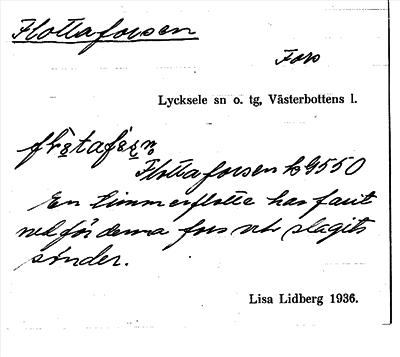 Flottaforsen
Fors
Lycksele sn o. tg, Västerbottens l.
Flottaforsen b 9550
En timmerflotte har farit
ned för denna fors och slagits
sönder.
Lisa Lidberg 1936.